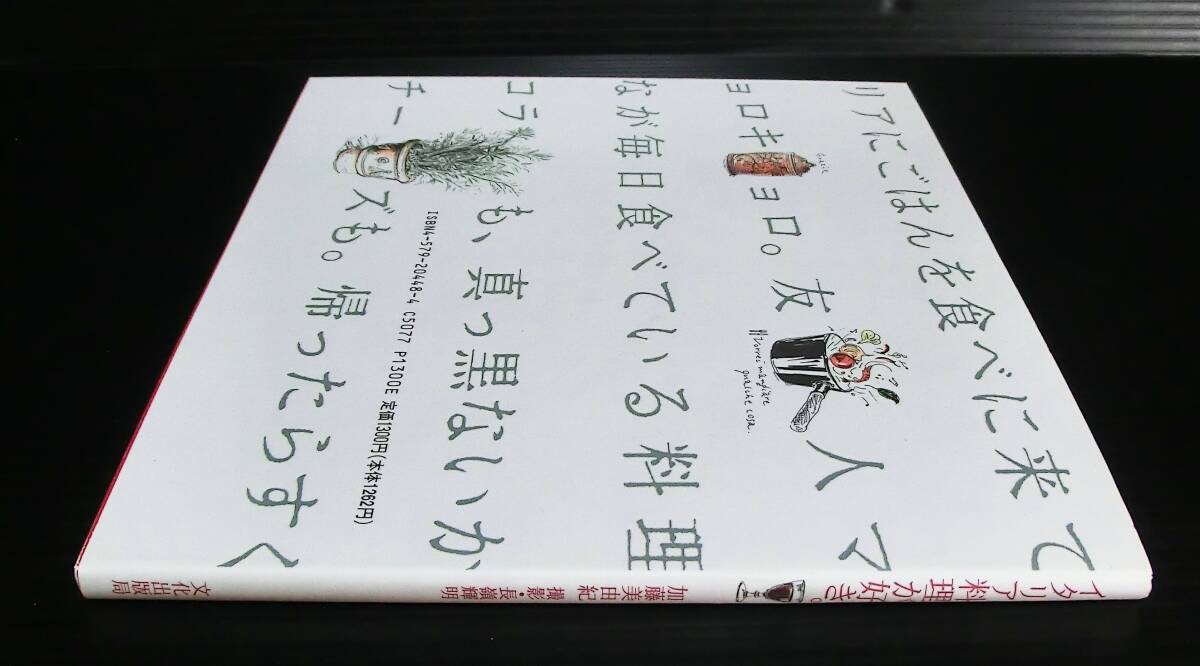 リアにごはんを食べに来て
ョロキョロ。友人マ
Grazie
Vorrei mangiare
qualche cosa.
なが毎日食べている料理
コラも、真っ黒ないか
チーズも。帰ったらすく
ISBN4-579-20448-4 C5077 P1300E 定価1300円(本体1262円)
イタリア料理が好き。
加藤美由紀
撮影・長嶺輝明
文化出版局